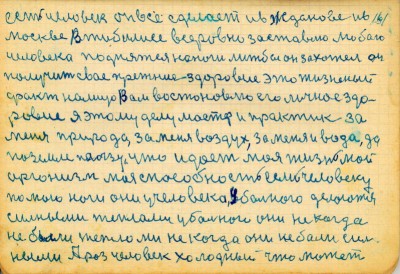 есть человек он всё сделает и в Жданове и в 141
москве В тбилисе всеровно заставлю любого
человека поднятся на ноги лишбы он захотел он
получит свае прежние-здоровие Это жизненый
факт на лицо Вам востоновлю его личное здо-
ровие я этому делу мастр и практик за
меня природа, за меня воздух, за меня и вода, да
по земле ползу, что идает моя жизнь мой
оргонизм моя способность если человеку
помогю ноги они у человека, у болного делаются
силными теплами у болного они не когда
не были тепломи не когда они не бали сил-
ныеми А роз человек холодный что может